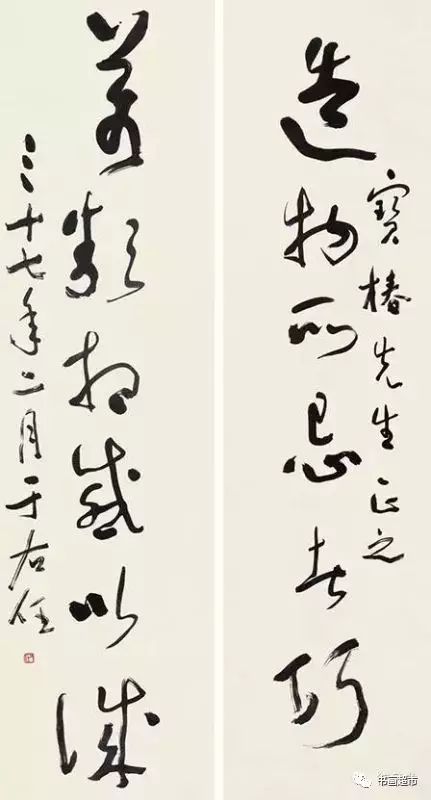 造物所忌者巧
寶椿先生正之
萬類相感以誠
三十七年二月于右任
书画超市